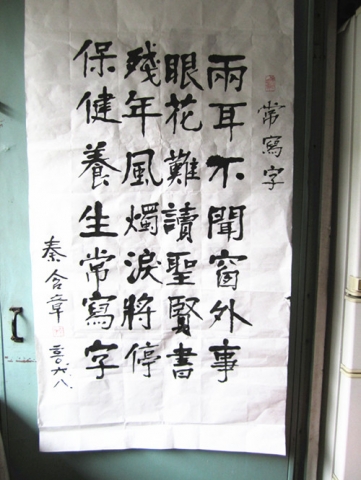 常寫字
兩耳不聞窗外事
眼花難讀聖賢書
殘年風燭淚將停
保健養生常寫字
秦含章